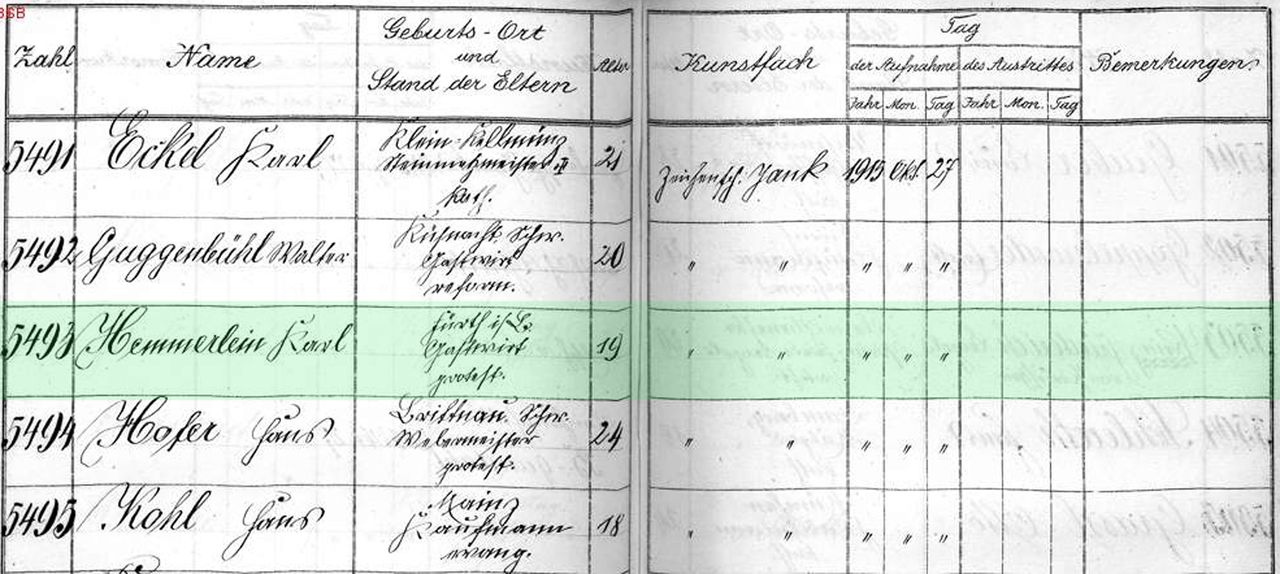 BSB
Zahl Name Geburts-Ort und Stand der Eltern Alter Kunstfach Tag der Aufnahme des Austrittes Bemerkungen
Jahr Mon. Tag Jahr Mon. Tag
5491 Eckel Karl Klein-Kellmünz 21 Zeichensch. Jank 1915 Okt. 27
Steinmetzmeister
kath.
5492 Guggenbühl Walter Küsnacht, Schw. 20 " " " " "
Gastwirt
reform.
5493 Hemmerlein Karl Fürth i/B. 19 " " " " "
Gastwirt
protest.
5494 Hofer Hans Brittnau. Schw. 24 " " " " "
Webermeister
protest.
5495 Kohl Hans Mainz 18 " " " " "
Kaufmann
evang.